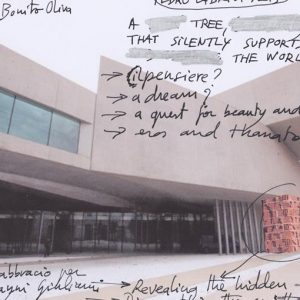 Bonito Oliva
A TREE
THAT SILENTLY SUPPORTS
THE WORLD
→ ilpensiere?
→ a dream?
→ a quest for beauty and
→ eros and thanat
abbraccio per
→ Revealing the hidden